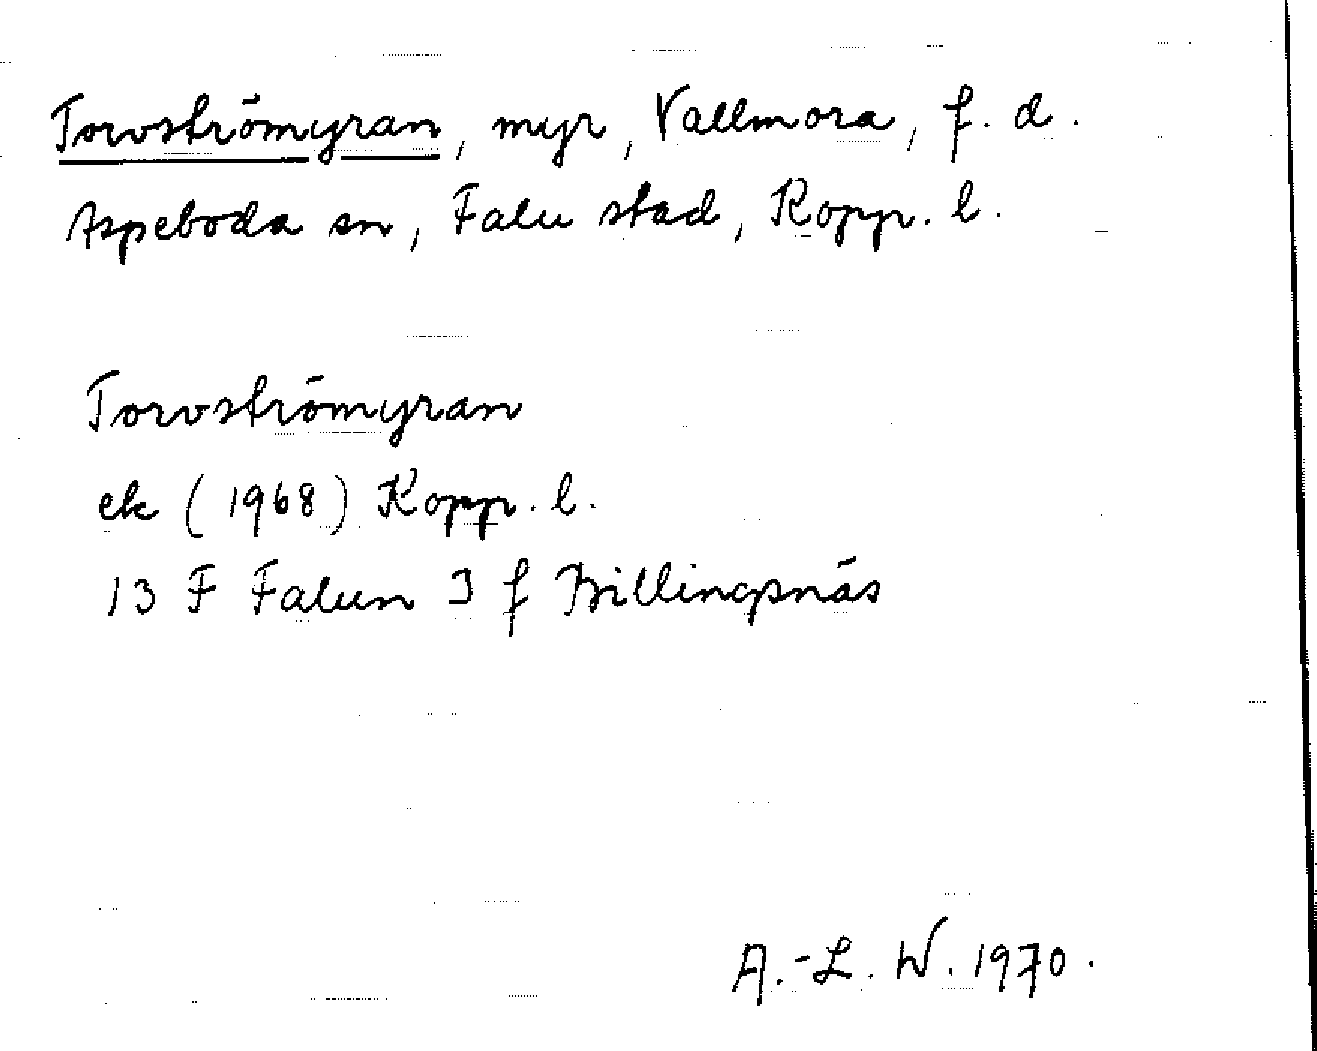 Torvströmyran, myr, Vallmora, f. d.
Aspeboda sn, Falu stad, Kopp. l.
Torvströmyran
ek (1968) Kopp. l.
13 F Falun 3 f Billingsnäs
A.-L. W. 1970.